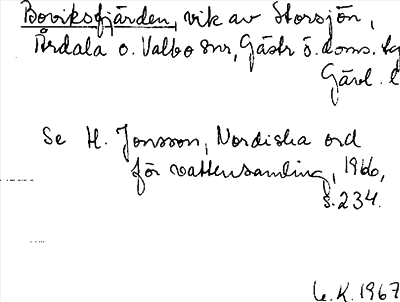 Boviksfjärden, vik av Storsjön,
Årdala o. Valbo snr, Gästr ö. doms. tg
Gävl. l
Se H. Jonsson, Nordiska ord
för vattensamling, 1966,
s. 234.
G.K. 1967